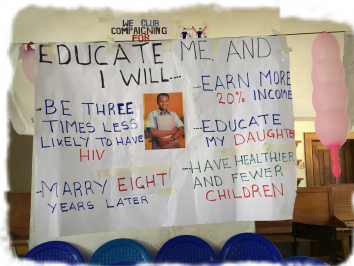 WE CLUB
COMPAIGNING
FOR
EDUCATE ME AND
I WILL....
-BE THREE
TIMES LESS
LIKELY TO HAVE
HIV
-MARRY EIGHT
YEARS LATER
-EARN MORE
20% INCOME
-EDUCATE
MY DAUGHTER
-HAVE HEALTHIER
AND FEWER
CHILDREN